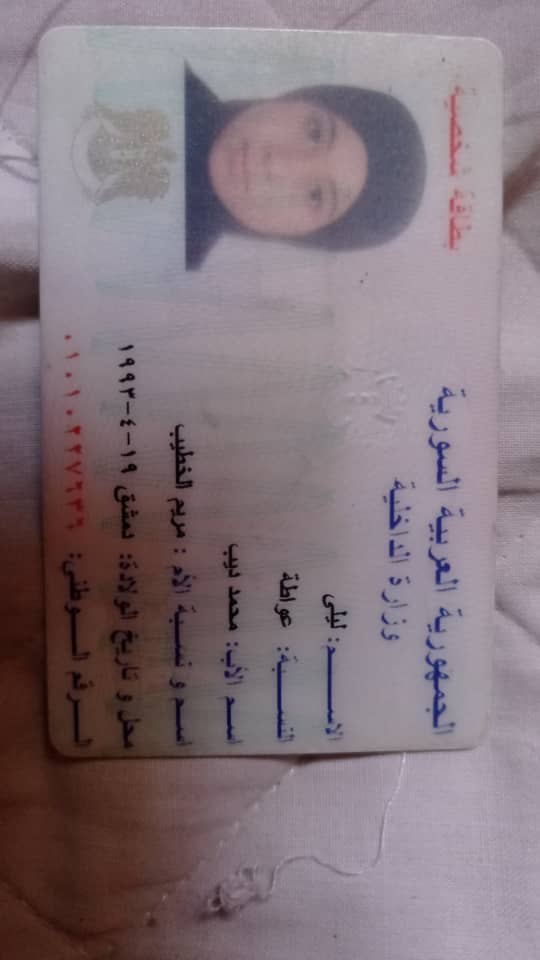 بطاقة شخصية
الجمهورية العربية السورية
وزارة الداخلية
الاســـم: ليلى
النسبـــة: عواطة
اسم الأب: محمد ديب
اسم و نسبة الأم: مريم الخطيب
محل و تاريخ الولادة: دمشق ١٩-٤-١٩٩٣
الـرقم الـوطني: